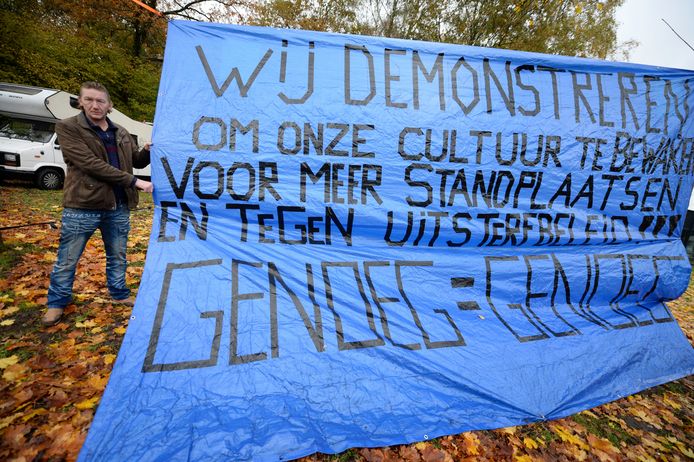 WIJ DEMONSTREREN
OM ONZE CULTUUR TE BEWAREN
VOOR MEER STANDPLAATSEN
EN TEGEN UITSTERFBELEID!!!
GENOEG=GENOEG